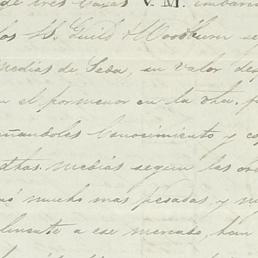 de tres Cajas V. M. embarc
los Sres. Guild & Woodburn se
medias de Seda, su valor des
n el pormenor en la otra, p
añandoles Conocimiento y co
dthas. medias segun las ord
mucho mas pesadas, y m
lmente a ese mercado, han